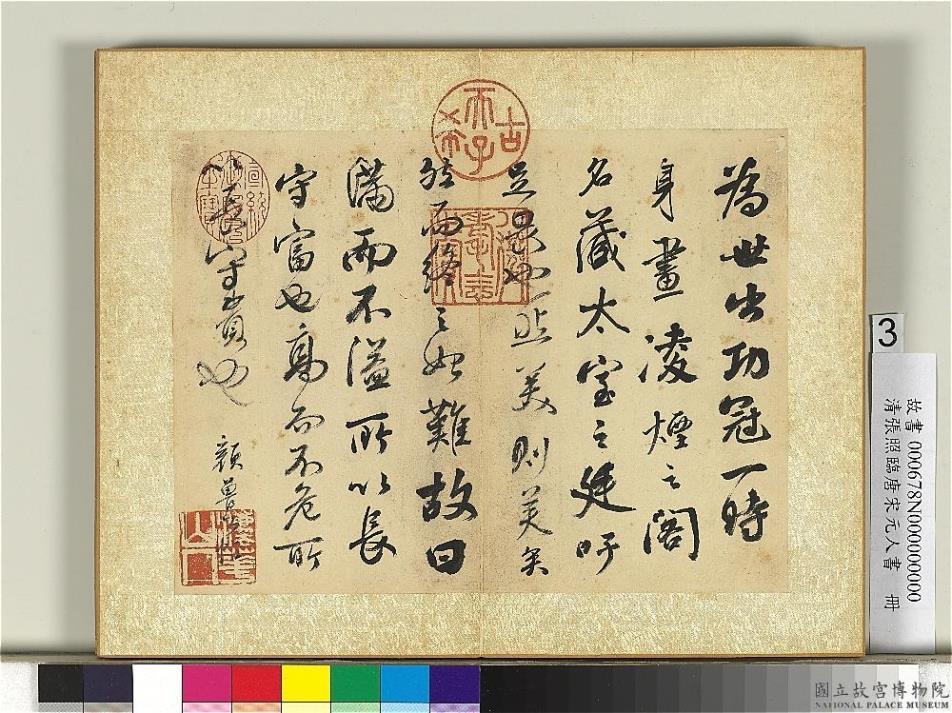 為世出功冠一時
身畫凌煙之閣
名藏太室之廷吁
足畏也然美則美矣
然而終之始難故曰
滿而不溢所以長
守富也高而不危所
以長守貴也
顏魯公
古希天子
3
故書 000678N000000000
清張照臨唐宋元人書 冊
國立故宮博物院
NATIONAL PALACE MUSEUM